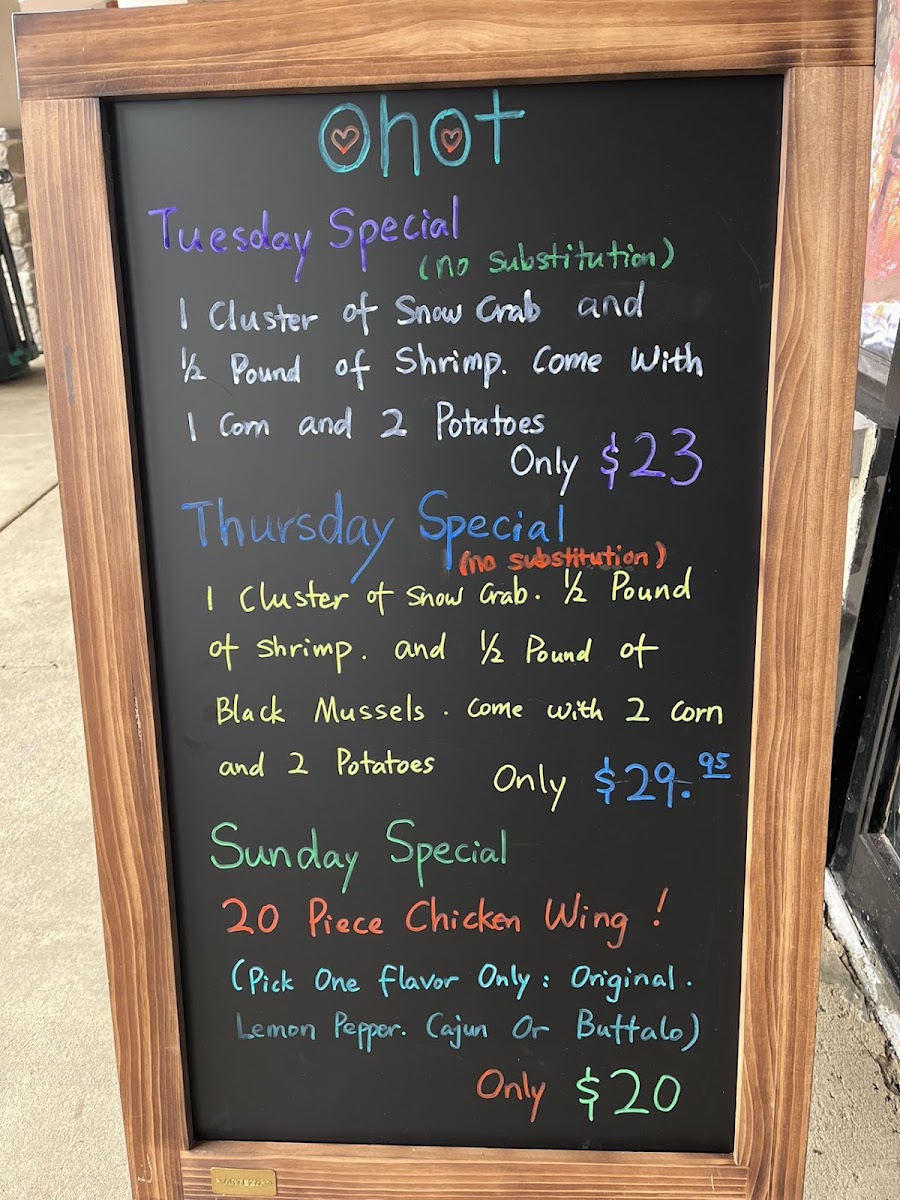 Ohot
Tuesday Special
(no substitution)
1 Cluster of Snow Crab and
½ Pound of Shrimp. Come With
1 Corn and 2 Potatoes
Only $23
Thursday Special
(no substitution)
1 Cluster of Snow Crab. ½ Pound
of Shrimp. and ½ Pound of
Black Mussels. Come with 2 Corn
and 2 Potatoes
Only $29.95
Sunday Special
20 Piece Chicken Wing!
(Pick One flavor Only: Original.
Lemon Pepper. Cajun Or Buffalo)
Only $20
ARTEZA